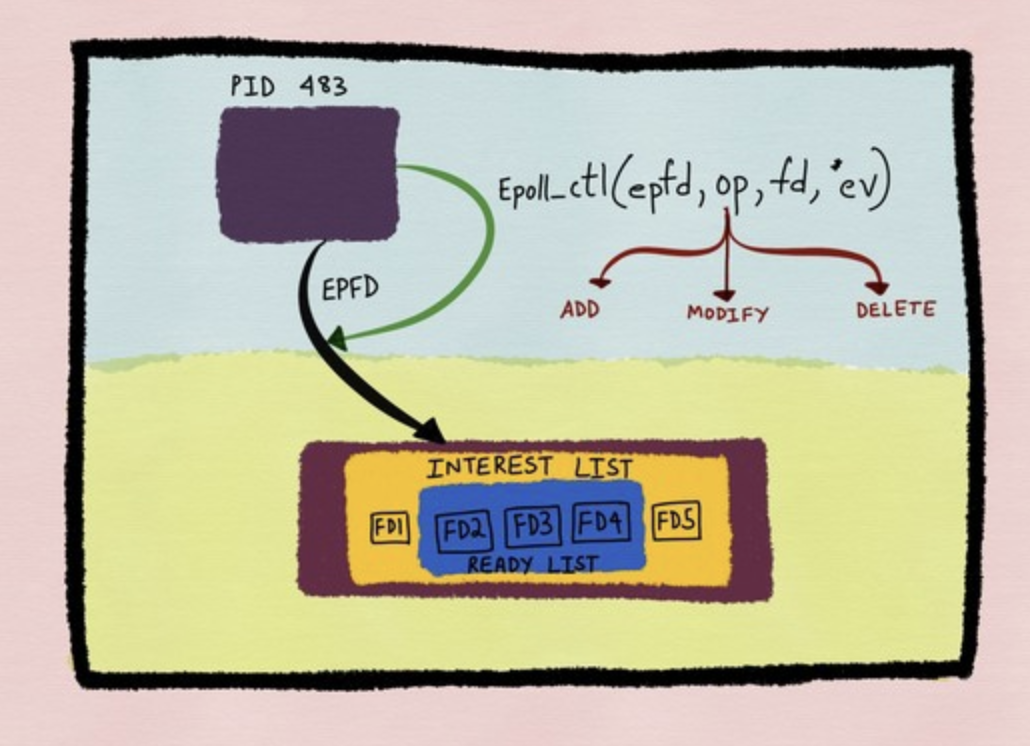 PID 483
Epoll_ctl(epfd, op, fd, *ev)
EPFD
ADD MODIFY DELETE
INTEREST LIST
FD1 FD2 FD3 FD4 FD5
READY LIST